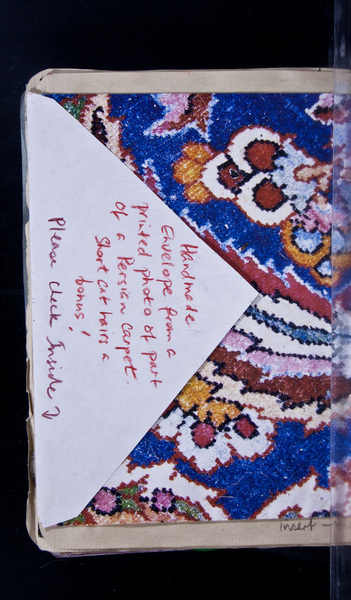 Handmade
Envelope from a
printed photo of part
of a Persian Carpet.
Short cut hairs a
bonus!
Please check Inside
Insert